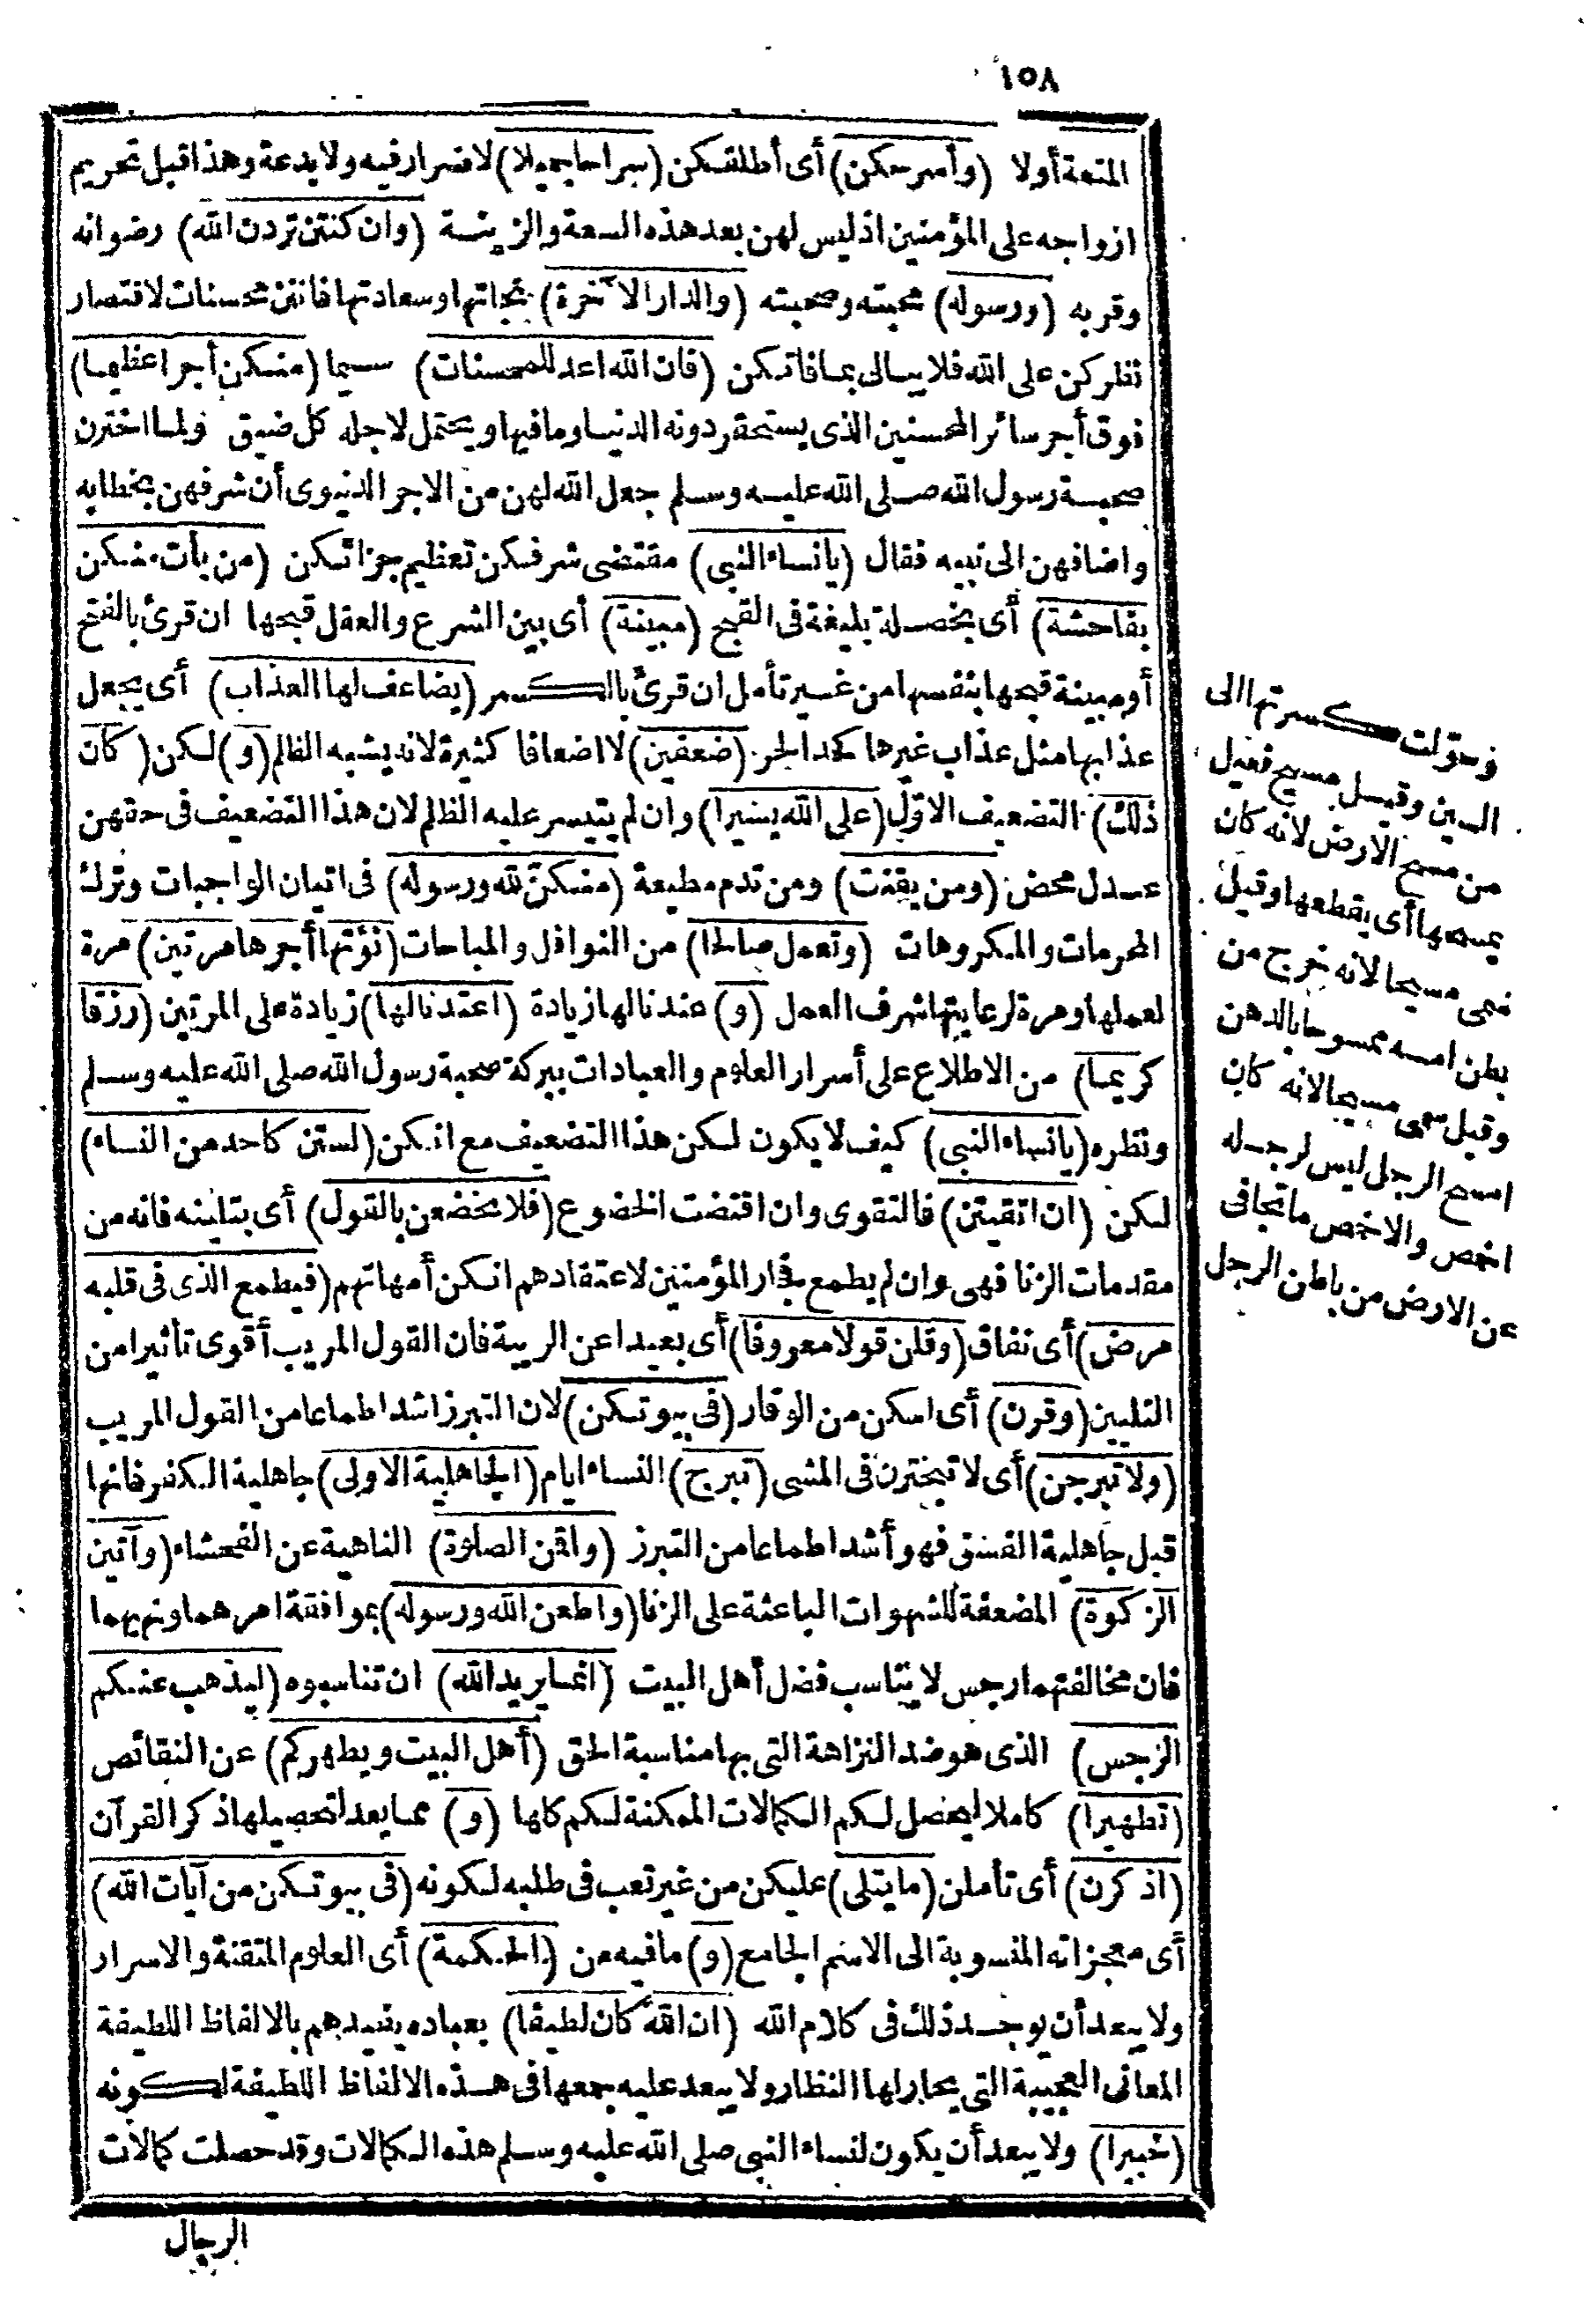 ١٥٨
المتعة أولا (وأسرحكن) أى أطلقكن (سراحا جميلا) لا ضرار فيه ولا بدعة وهذا قبل تحريم
ازواجه على المؤمنين اذ ليس لهن بعد هذه السعة والزينة (وان كنتن تردن الله) رضوانه
وقربه (ورسوله) محبته وصحبته (والدار الآخرة) نجاتها وسعادتها فانتن محسنات لاقتصار
نظركن على الله فلا يبالى بما فاتكن (فان الله اعد للمحسنات) سيما (منكن أجرا عظيما)
فوق أجر سائر المحسنين الذى يستحقر دونه الدنيا وما فيها ويحتمل لاجله كل ضيق ولما اخترن
صحبة رسول الله صلى الله عليه وسلم جعل الله لهن من الاجر الدنيوى أن شرفهن بخطابه
واضافهن الى نبيه فقال (يانساء النبى) مقتضى شرفكن تعظيم جزائكن (من يأت منكن
بفاحشة) أى بخصلة بليغة فى القبح (مبينة) أى بين الشرع والعقل قبحها ان قرئ بالفتح
أو مبينة قبحها بنفسها من غير تأمل ان قرئ بالكسر (يضاعف لها العذاب) أى يجعل
عذابها مثل عذاب غيرها كحد الحر (ضعفين) لا اضعافا كثيرة لانه يشبه الظلم (و) لكن (كان
ذلك) التضعيف الاوّل (على الله يسيرا) وان لم يتيسر عليه الظلم لان هذا التضعيف فى حقهن
عدل محض (ومن يقنت) ومن تدم مطيعة (منكنّ لله ورسوله) فى اتيان الواجبات وترك
المحرمات والمكروهات (وتعمل صالحا) من النوافل والمباحات (نؤتها أجرها مرتين) مرة
لعملها ومرة لرعايتها شرف العمل (و) عندنا لها زيادة (اعتدنا لها) زيادة على المرتين (رزقا
كريما) من الاطلاع على أسرار العلوم والعبادات ببركة صحبة رسول الله صلى الله عليه وسلم
ونظره (يانساء النبى) كيف لا يكون لكن هذا التضعيف مع انكن (لستن كاحد من النساء)
لكن (ان اتقيتن) فالتقوى وان اقتضت الخضوع (فلا تخضعن بالقول) أى بتليينه فانه من
مقدمات الزنا فهى وان لم يطمع فجار المؤمنين لاعتقادهم انكن أمهاتهم (فيطمع الذى فى قلبه
مرض) أى نفاق (وقلن قولا معروفا) أى بعيدا عن الريبة فان القول المريب أقوى تأثيرا من
التليين (وقرن) أى اسكن من الوقار (فى بيوتكن) لان التبرز اشد اطماعا من القول المريب
(ولا تبرجن) أى لا تبخترن فى المشى (تبرج) النساء ايام (الجاهلية الاولى) جاهلية الكفر فانها
قبل جاهلية الفسق فهو أشد اطماعا من التبرز (واقمن الصلوة) الناهية عن الفحشاء (وآتين
الزكوة) المضعفة للشهوات الباعثة على الزنا (واطعن الله ورسوله) بموافقة امرهما ونهيهما
فان مخالفتهما رجس لا يتناسب فضل أهل البيت (انما يريد الله) ان تناسبوه (ليذهب عنكم
الرجس) الذى هو ضد النزاهة التى بها مناسبة الحق (أهل البيت ويطهركم) عن النقائص
(تطهيرا) كاملا ليحصل لكم الكمالات الممكنة لكم كلها (و) مما يعد لتحصيلها ذكر القرآن
(اذكرن) أى تأملن (ما يتلى) عليكن من غير تعب فى طلبه لكونه (فى بيوتكن من آيات الله)
أى معجزاته المنسوبة الى الاسم الجامع (و) ما فيه من (الحكمة) أى العلوم المتقنة والاسرار
ولا يبعد أن يوجد ذلك فى كلام الله (ان الله كان لطيفا) بعباده يفيدهم بالالفاظ اللطيفة
المعانى العجيبة التى يحار لها النظار ولا يبعد عليه جمعها فى هذه الالفاظ اللطيفة لكونه
(خبيرا) ولا يبعد أن يكون لنساء النبى صلى الله عليه وسلم هذه الكمالات وقد حصلت كمالات
الرجال
فحوّلت كسرتها الى
السين وقيل مسيح فعيل
من مسح الارض لانه كان
يمسحها أى يقطعها وقيل
سمى مسيحا لانه خرج من
بطن امه ممسوحا بالدهن
وقيل سمى مسيحا لانه كان
امسح الرجل ليس لرجله
اخمص والاخمص ما تجافى
عن الارض من باطن الرجل